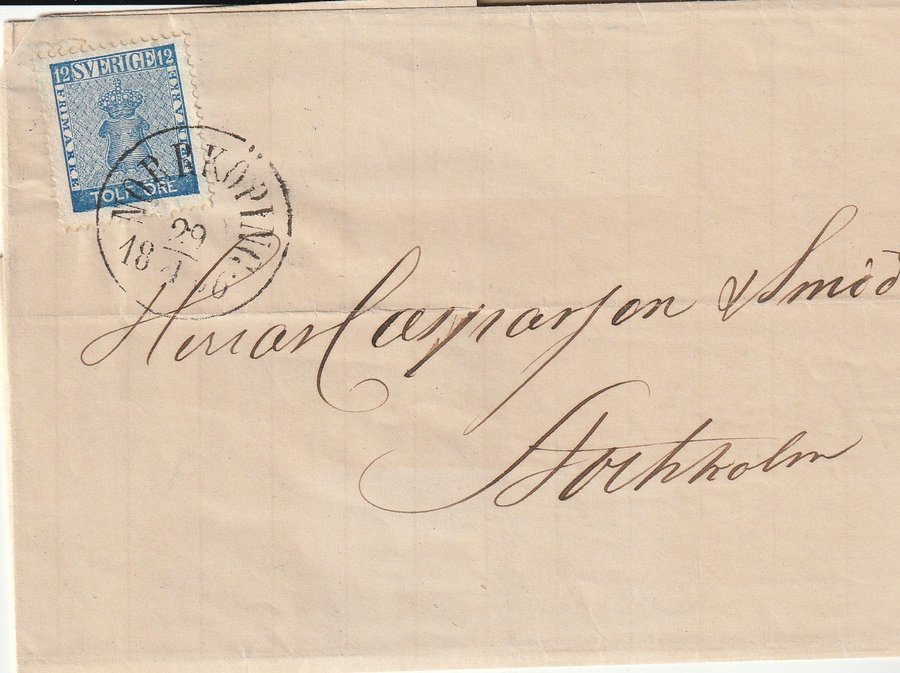 12 SVERIGE 12
FRIMÄRKE
FRIMÄRKE
TOLF ÖRE
NORRKÖPING
29
18 4
Herrar Casparsson & Smid
Stockholm